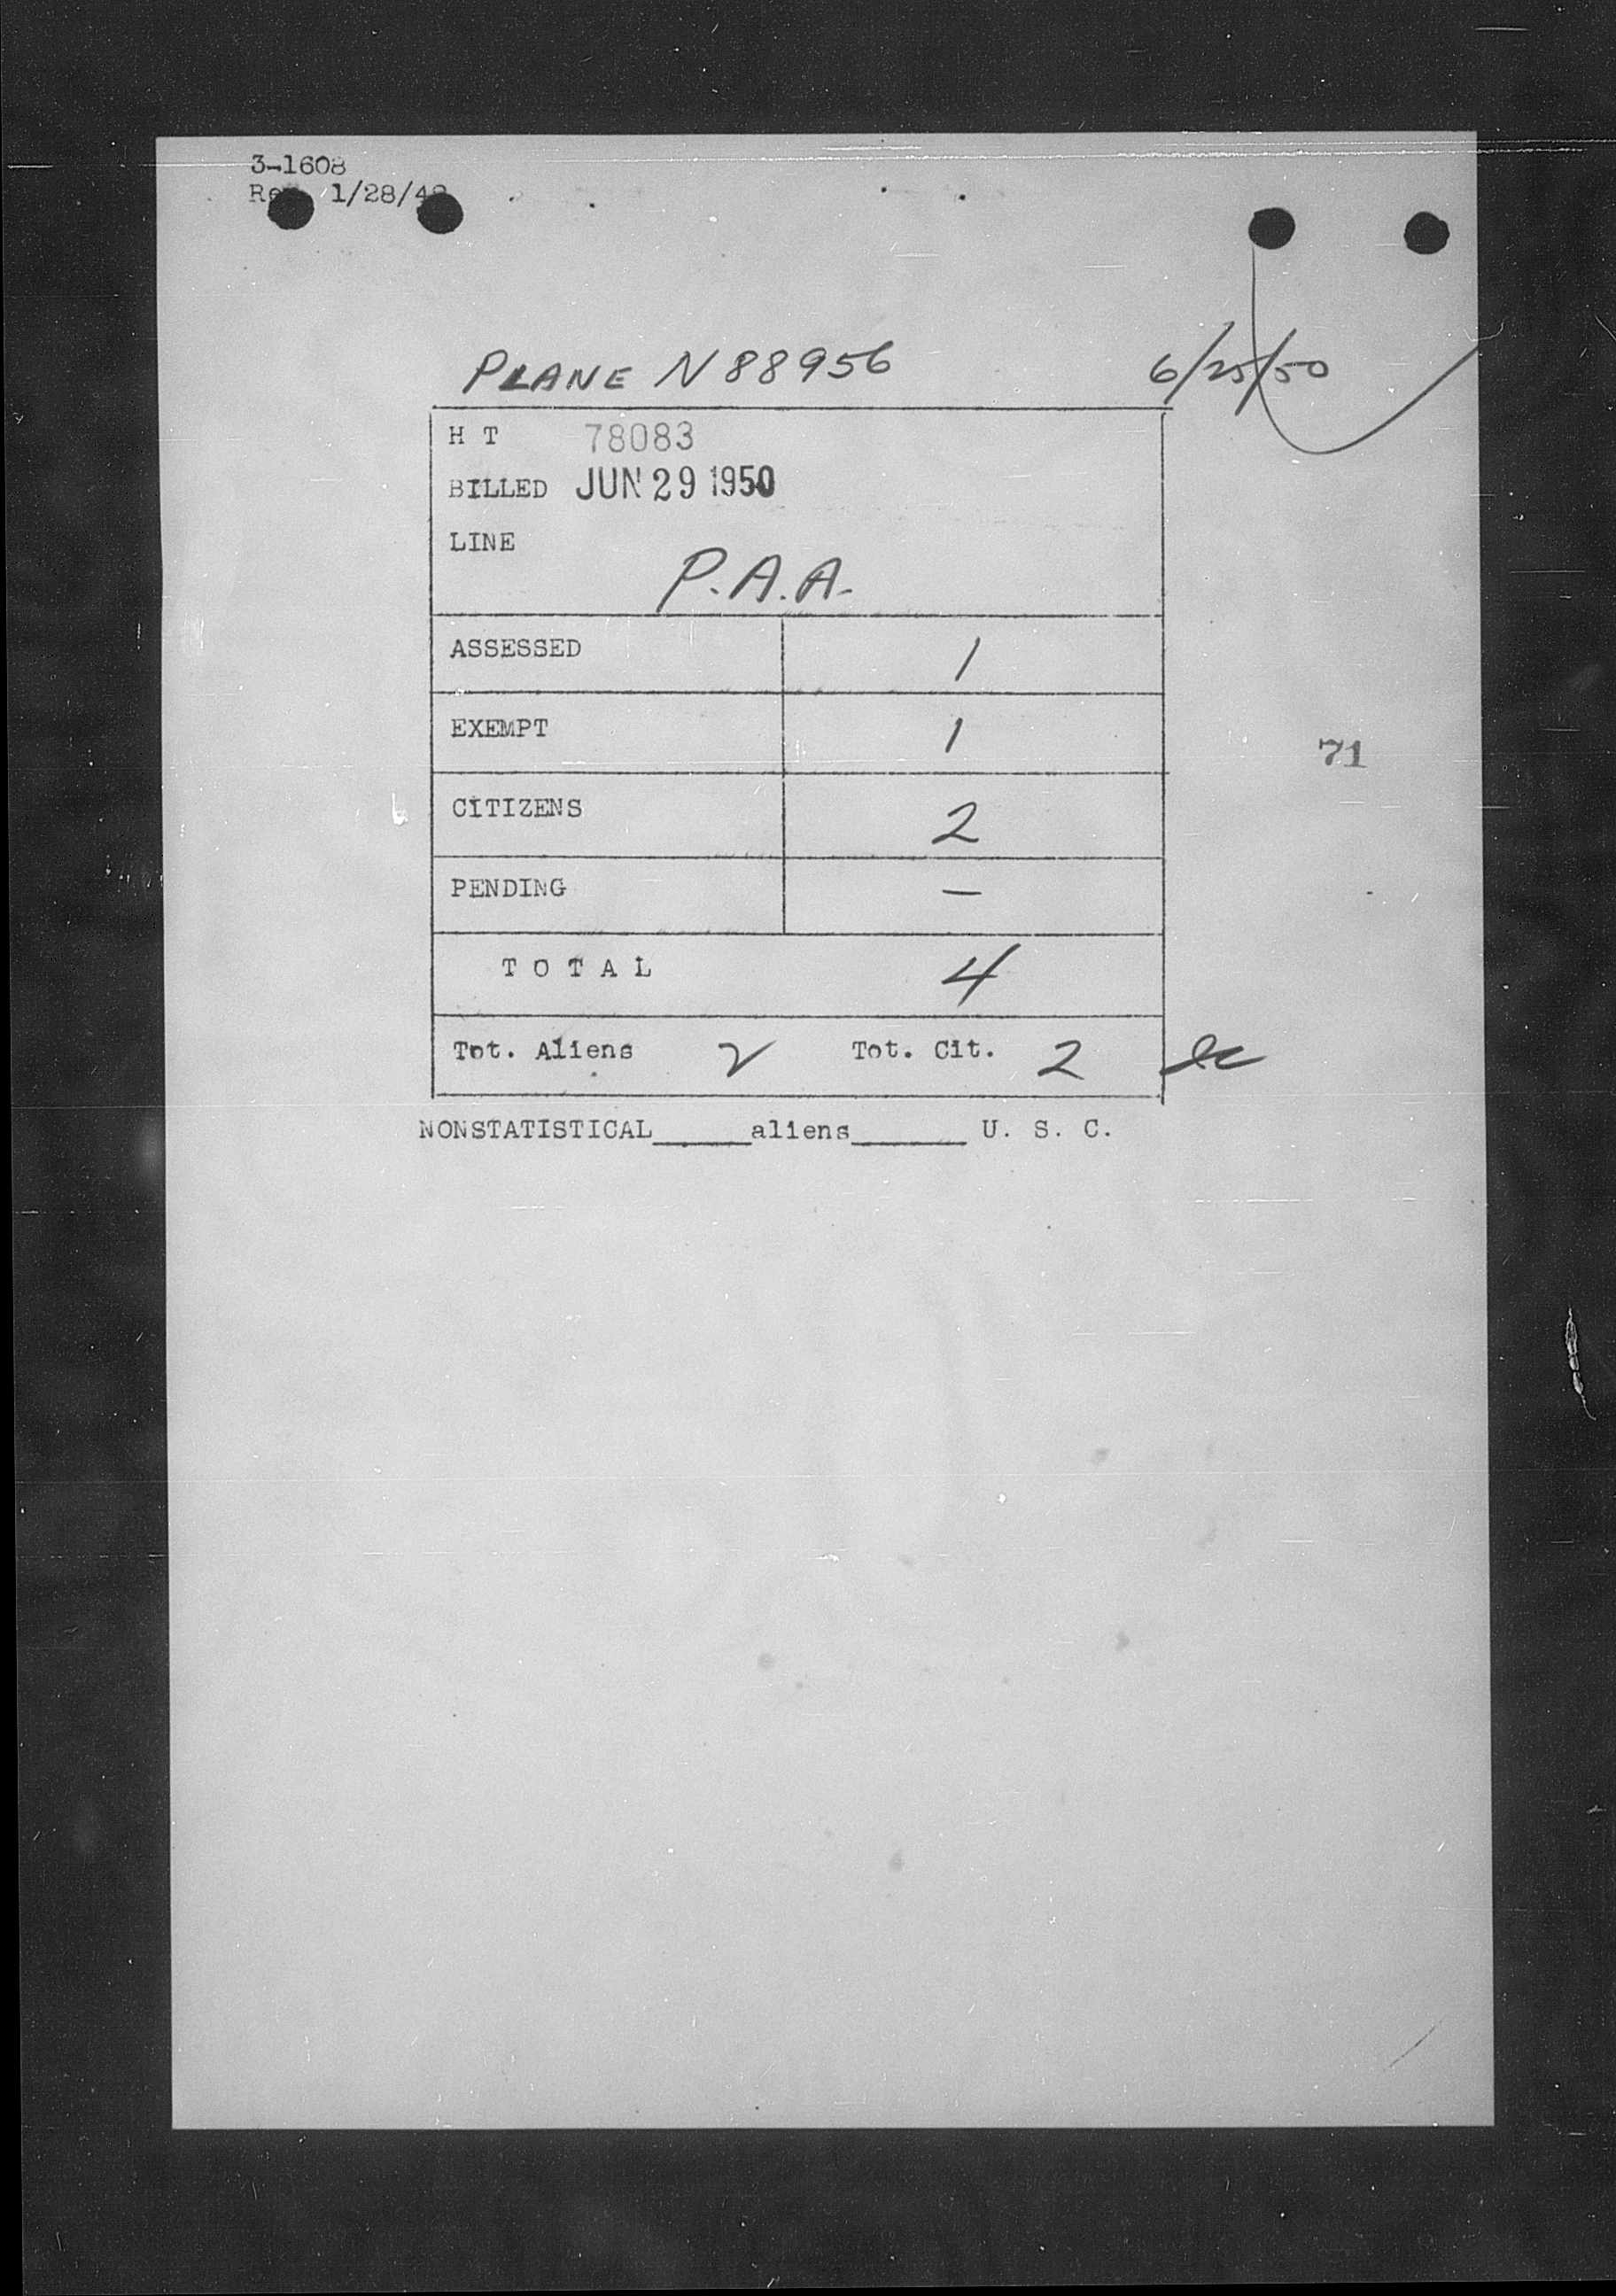 3-1608
Rev 1/28/48
PLANE N88956 6/25/50
H T 78083
BILLED JUN 29 1950
LINE
P.A.A.
ASSESSED 1
EXEMPT 1
71
CITIZENS 2
PENDING —
T O T A L 4
Tot. Aliens 2 Tot. Cit. 2
NONSTATISTICAL_____aliens______ U. S. C.